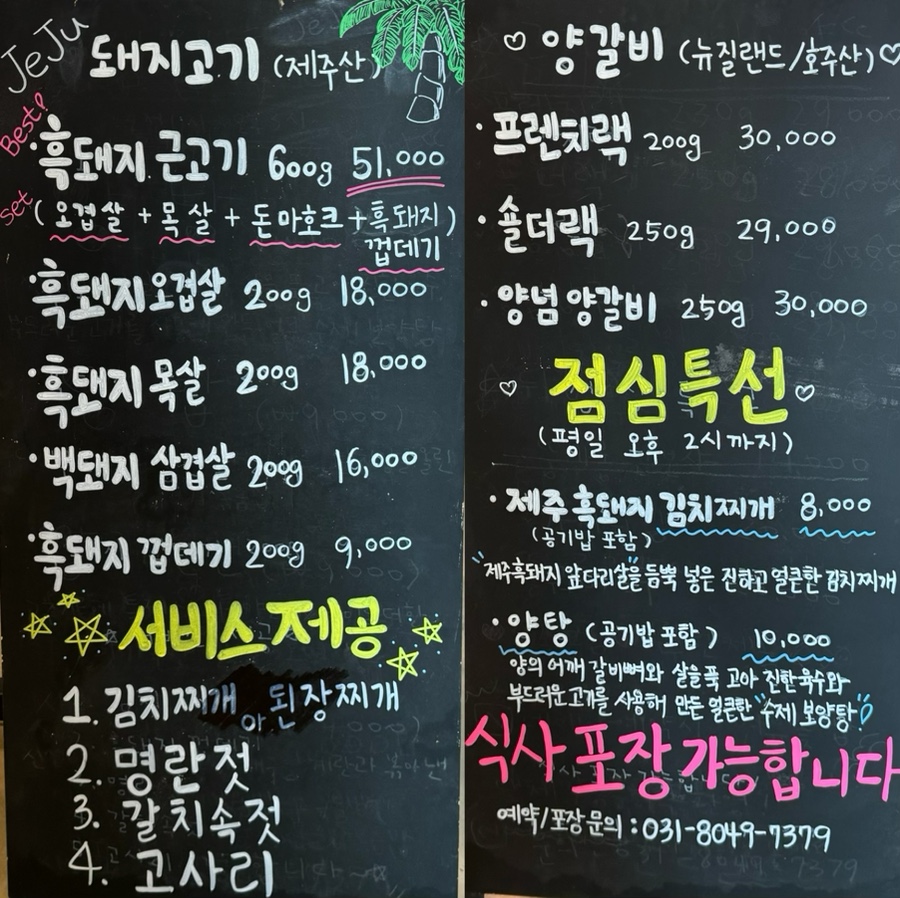 JeJu
돼지고기 (제주산)
Best!
·흑돼지 근고기 600g 51,000
set
(오겹살 + 목살 + 돈마호크 + 흑돼지)
껍데기
·흑돼지 오겹살 200g 18,000
·흑돼지 목살 200g 18,000
·백돼지 삼겹살 200g 16,000
·흑돼지 껍데기 200g 9,000
서비스 제공
1. 김치찌개 or 된장찌개
2. 명란젓
3. 갈치속젓
4. 고사리
♡ 양갈비 (뉴질랜드/호주산) ♡
·프렌치랙 200g 30,000
·숄더랙 250g 29,000
·양념 양갈비 250g 30,000
♡ 점심특선 ♡
(평일 오후 2시까지)
·제주 흑돼지 김치찌개 8,000
(공기밥 포함)
"제주흑돼지 앞다리살"을 듬뿍 넣은 진하고 얼큰한 김치찌개
·양탕 (공기밥 포함) 10,000
양의 어깨 갈비뼈와 살을 푹 고아 진한 육수와
부드러운 고기를 사용해 만든 얼큰한 "수제 보양탕"
식사 포장 가능합니다
예약/포장 문의 : 031-8049-7379